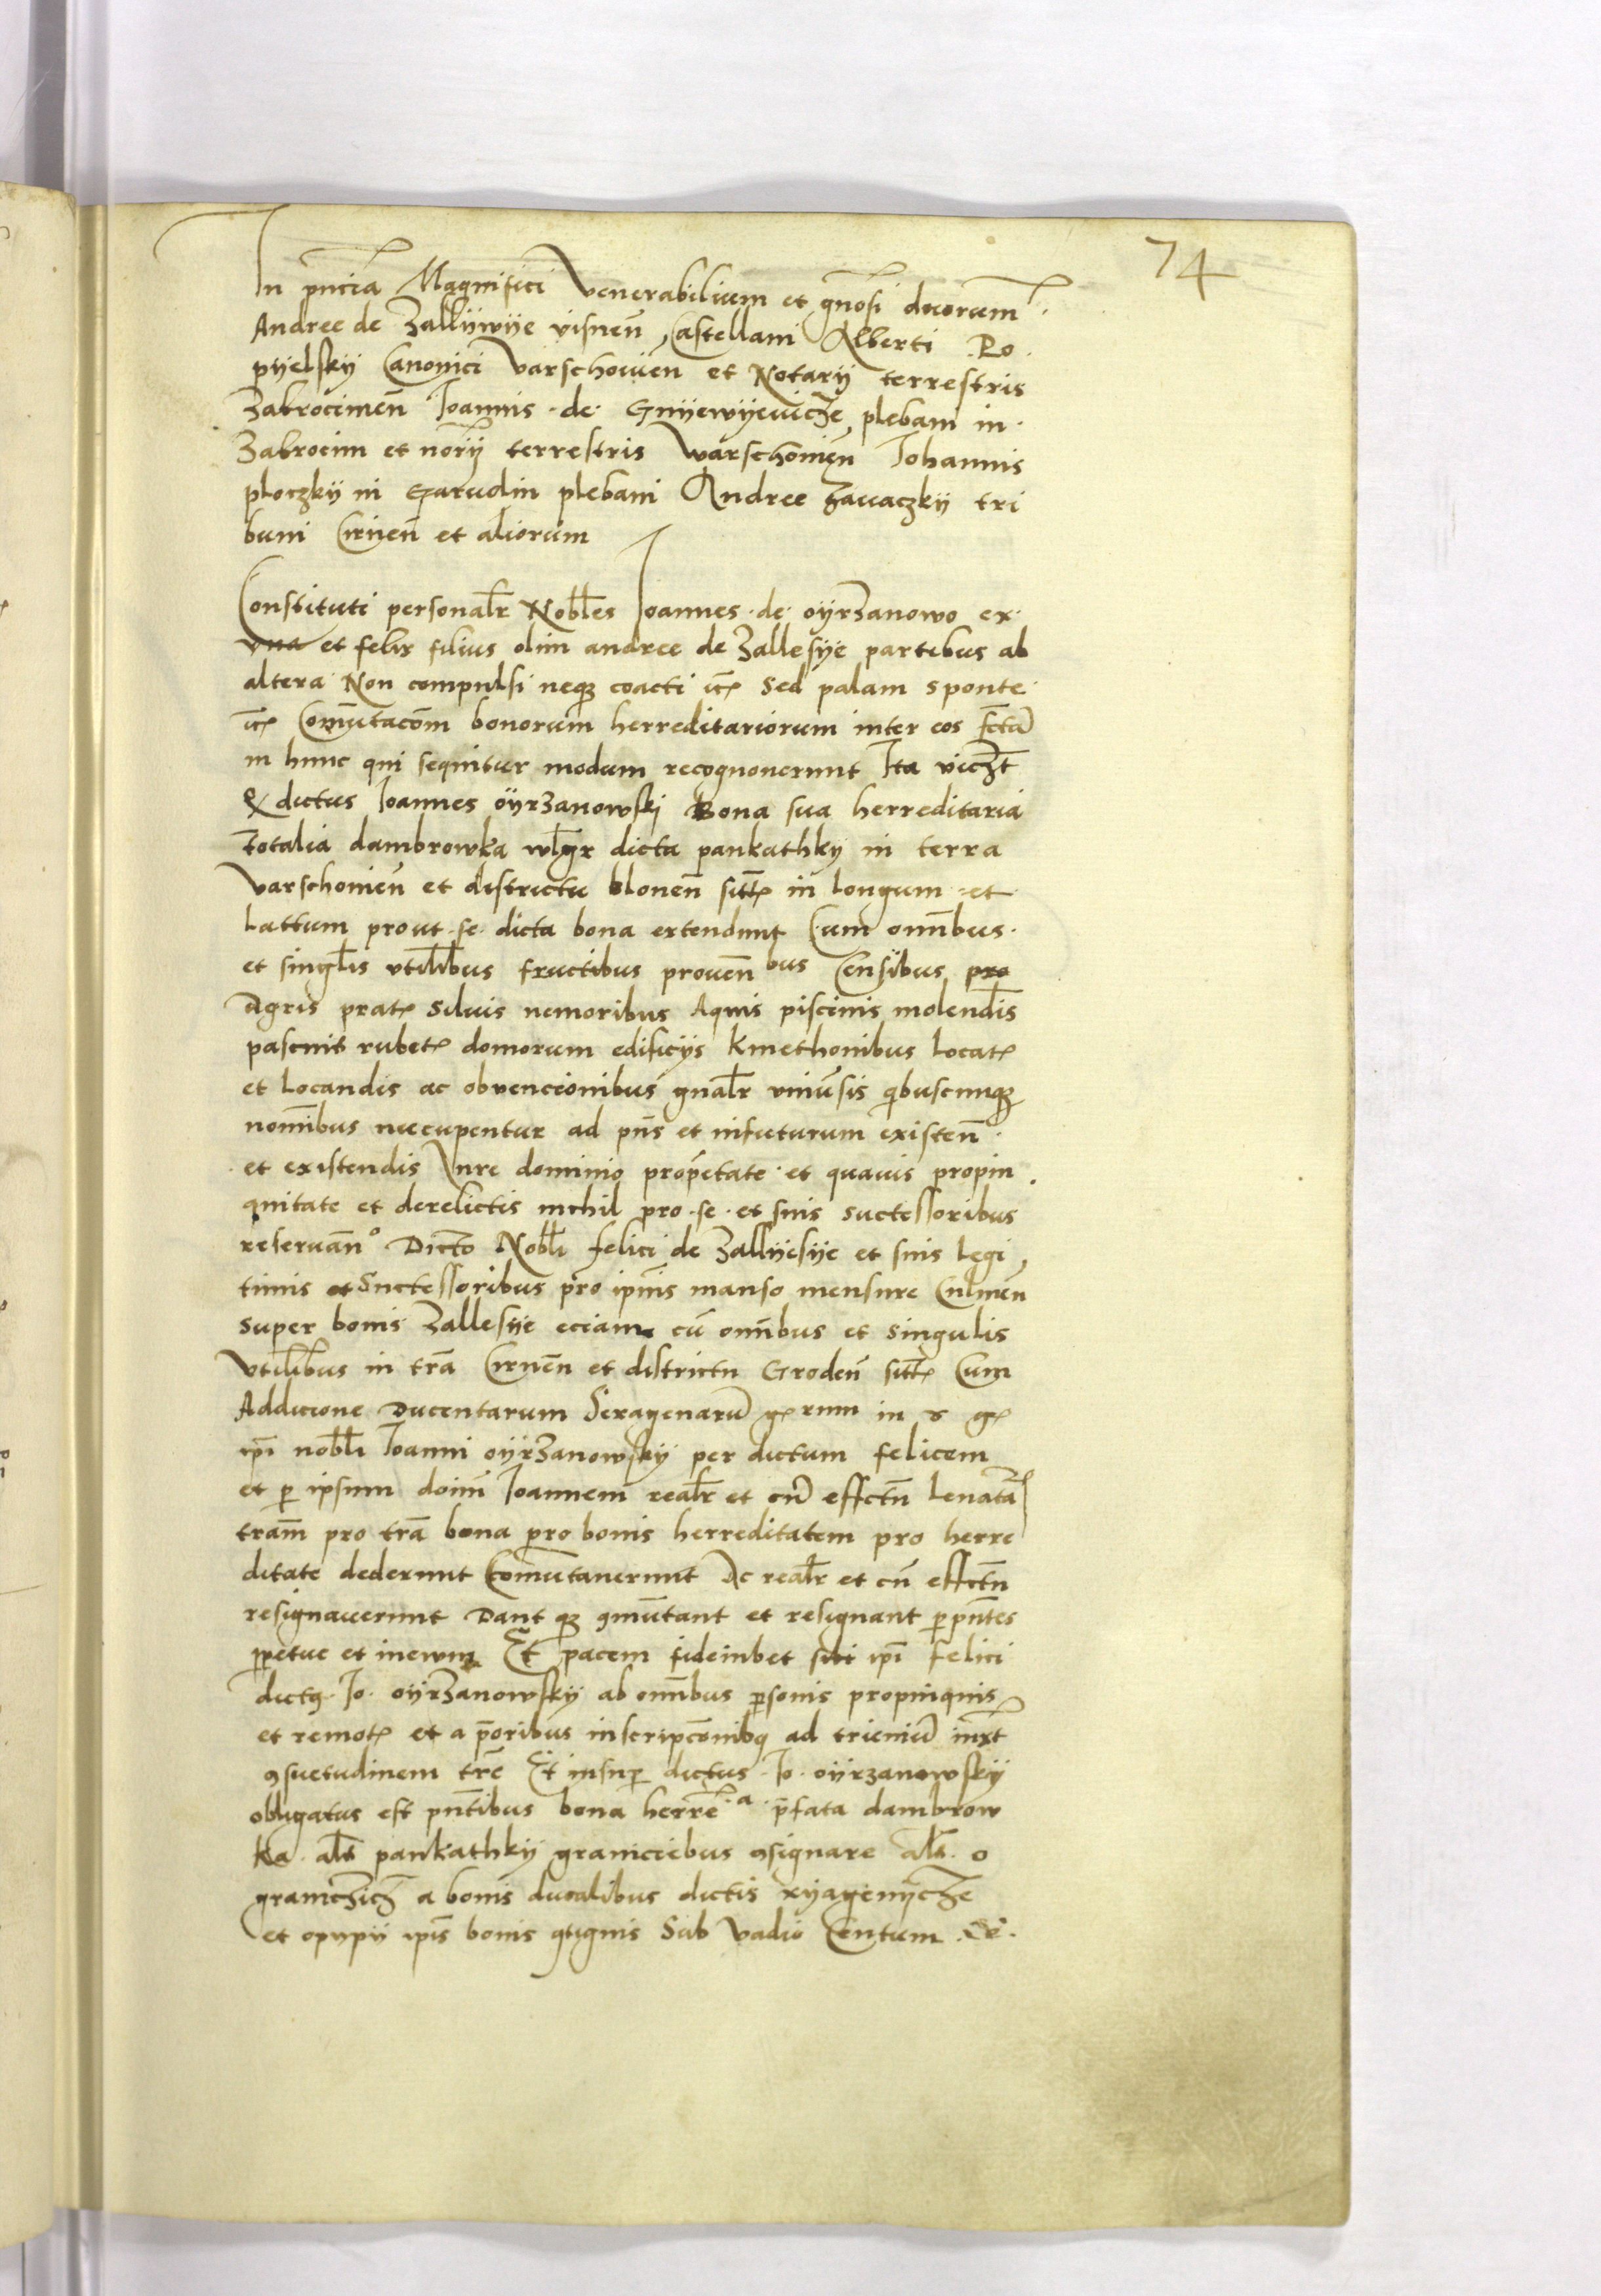 74
In pn̄cia Magnifici Venerabilium et gn̄osi deorum
Andree de Zallijwije visnen̄ Castellani Alberti Po
pijelskij Canonici Varschouien̄ et Notarij terrestris
Zakrocimen̄ Joannis de Gnijewijeuicze plebani in
Zakrocim et norij terrestris Warschouien̄ Johannis
ploczkij in Garvolin plebani Andree Zauaczkij tri
buni Cirnen̄ et aliorum
Constituti personalr Nobles Joannes de oÿrzanowo ex
vna et felix filius olim andree de Zallesije partibus ab
altera Non compulsi neqz coacti etc sed palam sponte
etc Comūtacōm bonorum herreditariorum inter eos fctā
in hunc qui sequitur modum recognouerunt Ita viczt
Q dictus Joannes oÿrzanowskj Bona sua herreditaria
totalia dambrowka wlgr dicta pankathky in terra
Varschouien̄ et districtu blonen̄ sitt in longum et
Lattum prout se dicta bona extendunt Cum omībus
et singlis vtilibus fructibus prouen̄bus Censibus pro
Agris prat Siluis nemoribus Aquis piscinis molendis
pascuis rubet domorum edificijs kmethonibus locat
et Locandis ac obuencionibus gnalr vniūsis qibuscunqz
nomībus nūcupentur ad pn̄s et infuturum existen̄
et existendis Iure dominio prop̄etate et quauis propin
quitate et derelictis nichil pro se et suis successoribus
reseruan̄o Dicto Nobli felici de Zallijesije et suis legi
timis et Successoribus pro ipīus manso mensure Culmen̄
super bonis Zallesije eciam cū omībus et singulis
Vtilibus in trā Cirnen̄ et districtu Groden̄ sitt Cum
Addicione Ducentarum Sexagenarū grrum in s gr
ipī nobli Joanni oÿrzanowskij per dictum felicem
et p ipsum doim̄ Joannem realr et cū effctu leuatā
tram̄ pro trā bona pro bonis herreditatem pro herre
ditate dederunt Comūtauerunt Ac realr et cū effctu
resignauerunt Dant qz 9mūtant et resignant p pn̄tes
ppetue et ineuum Et pacem fideiubet sibi ipī felici
dict9 Jo oÿrzanowskij ab omībus psonis propinquis
et remot et a p̄oribus inscripcōnib9 ad trieniū iuxt
9suetudinem tre Et insup dictus Jo oÿrzanowskij
obligatus est pn̄tibus bona herre a p̄fata dambrow
ka als pankathkij graniciebus 9signare als o
gramczicz a bonis ducalibus dictis xijagenijcze
et opypij ipīs bonis 9tiguis Sub Vadio Centum